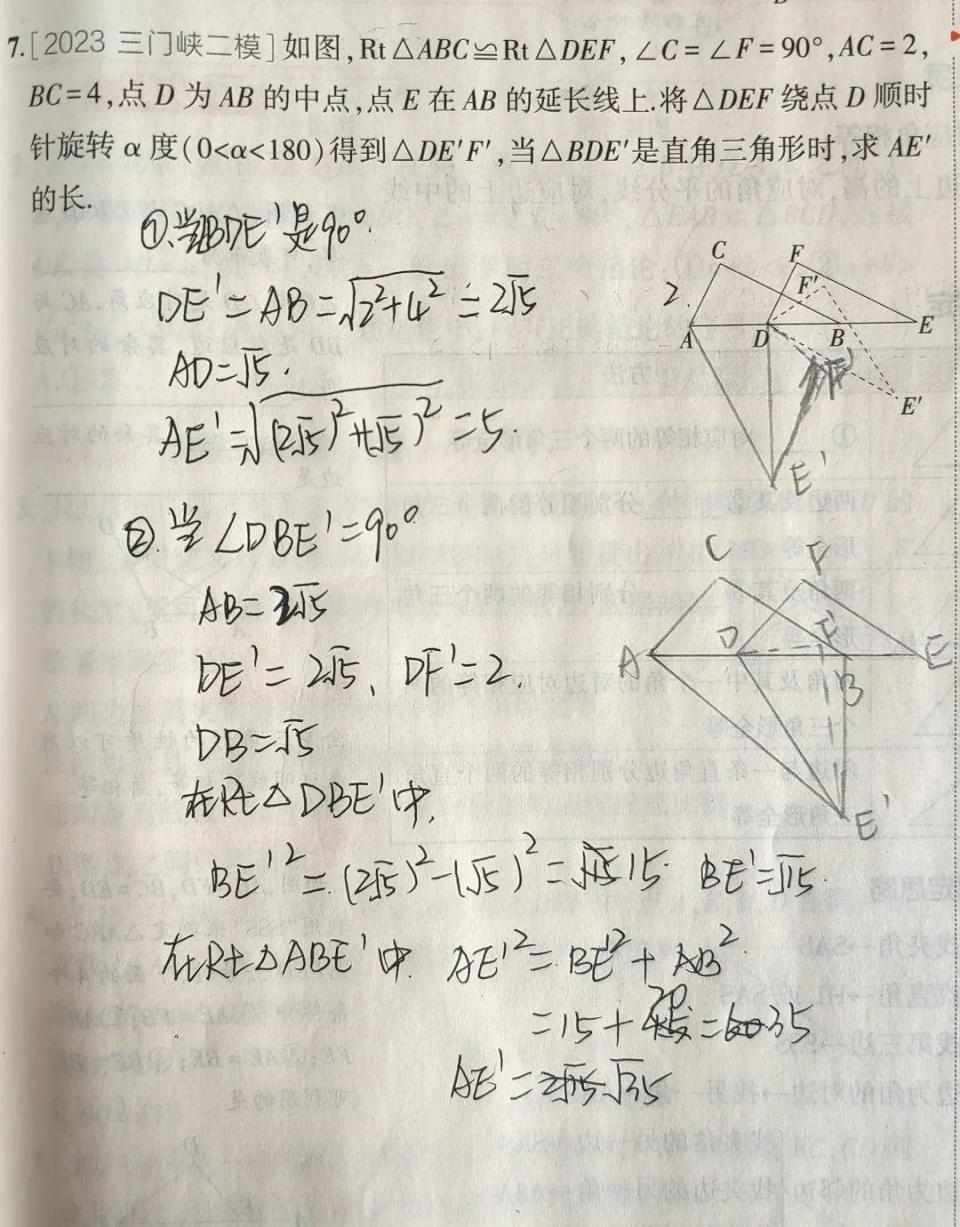 7.[2023 三门峡二模]如图,Rt△ABC≌Rt△DEF,∠C=∠F=90°,AC=2,
BC=4,点 D 为 AB 的中点,点 E 在 AB 的延长线上.将△DEF 绕点 D 顺时
针旋转 α 度(0<α<180)得到△DE′F′,当△BDE′是直角三角形时,求 AE′
的长.
①.当BDE′是90°.
DE′=AB=√(2²+4²)=2√5
AD=√5.
AE′=√((2√5)²+(√5)²)=5.
C F
F′
2.
A D B E
E′
E′
②.当∠DBE′=90°
AB=2√5
DE′=2√5、DF′=2.
DB=√5
在Rt△DBE′中,
C F
A D F′ E
B
E′
BE′²=(2√5)²-(√5)²=15. BE′=√15.
在Rt△ABE′中. AE′²=BE′²+AB².
=15+20=35
AE′=√35